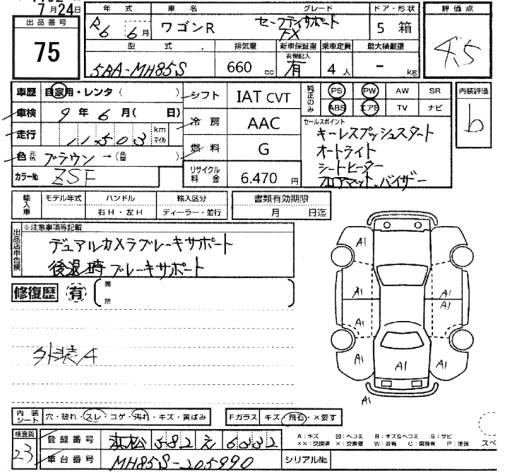 7月24日
出品番号
75
年式
R6 6月
車名
ワゴンR
グレード
セーフティサポート
FX
ドア・形状
5 箱
評価点
4.5
型式
5BA-MH85S
排気量
660 cc
新車保証書
有
乗車定員
4人
最大積載量
- kg
車歴 自家用・レンタ( )
車検 9年6月( 日)
走行 11,503 km マイル
色 元色 ブラウン→(色替)
カラーNo. ZSF
シフト IAT CVT
冷房 AAC
燃料 G
リサイクル料金 6.470円
純正のみ
PS PW AW SR
ABS エアB TV ナビ
セールスポイント
キーレスプッシュスタート
オートライト
シートヒーター
フロアマット、バイザー
内装評価
b
輸入車
モデル年式 ハンドル 輸入区分 書類有効期限
右H・左H ディーラー・並行 月 日迄
出品店申告欄
※注意事項等記載
デュアルカメラブレーキサポート
後退時ブレーキサポート
修復歴 有 箇所
外装A
A1
A1
A1
A1
A1
A1
A1
A1
A1
内装シート 穴・破れ・スレ・コゲ・汚れ・キズ・黄ばみ
Fガラス キズ・飛石・×要す
検査員
23
登録番号 浜松 582 え 6332
車台番号 MH85S-205990
シリアルNo.
A:キズ